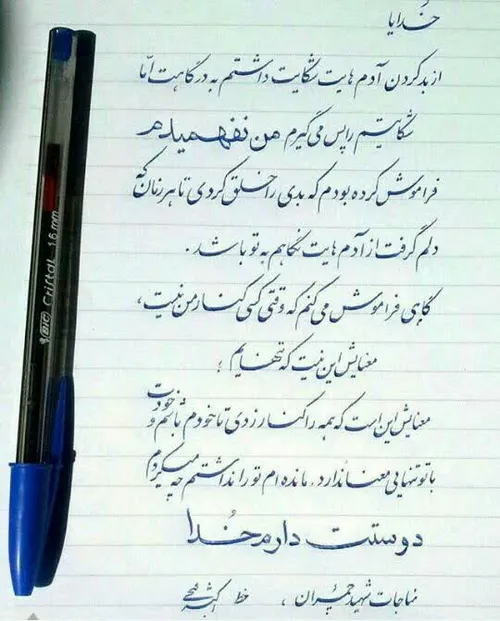 خدایا
از بد کردن آدم هایت شکایت داشتم به درگاهت امّا
شکایتم را پس می گیرم من نفهمیدم
فراموش کرده بودم که بدی را خلق کردی تا هر زمان که
دلم گرفت از آدم هایت نگاهم به تو باشد.
گاهی فراموش می کنم که وقتی کسی کنار من نیست،
معنایش این نیست که تنهایم؛
معنایش این است که همه را کنار زدی تا خودم باشم و خودت
با تو تنهایی معنا ندارد. مانده ام تو را نداشتم چه میکردم
دوستت دارم خُدا
مناجات شهید چمران، خط
BIC Cristal 1.6 mm